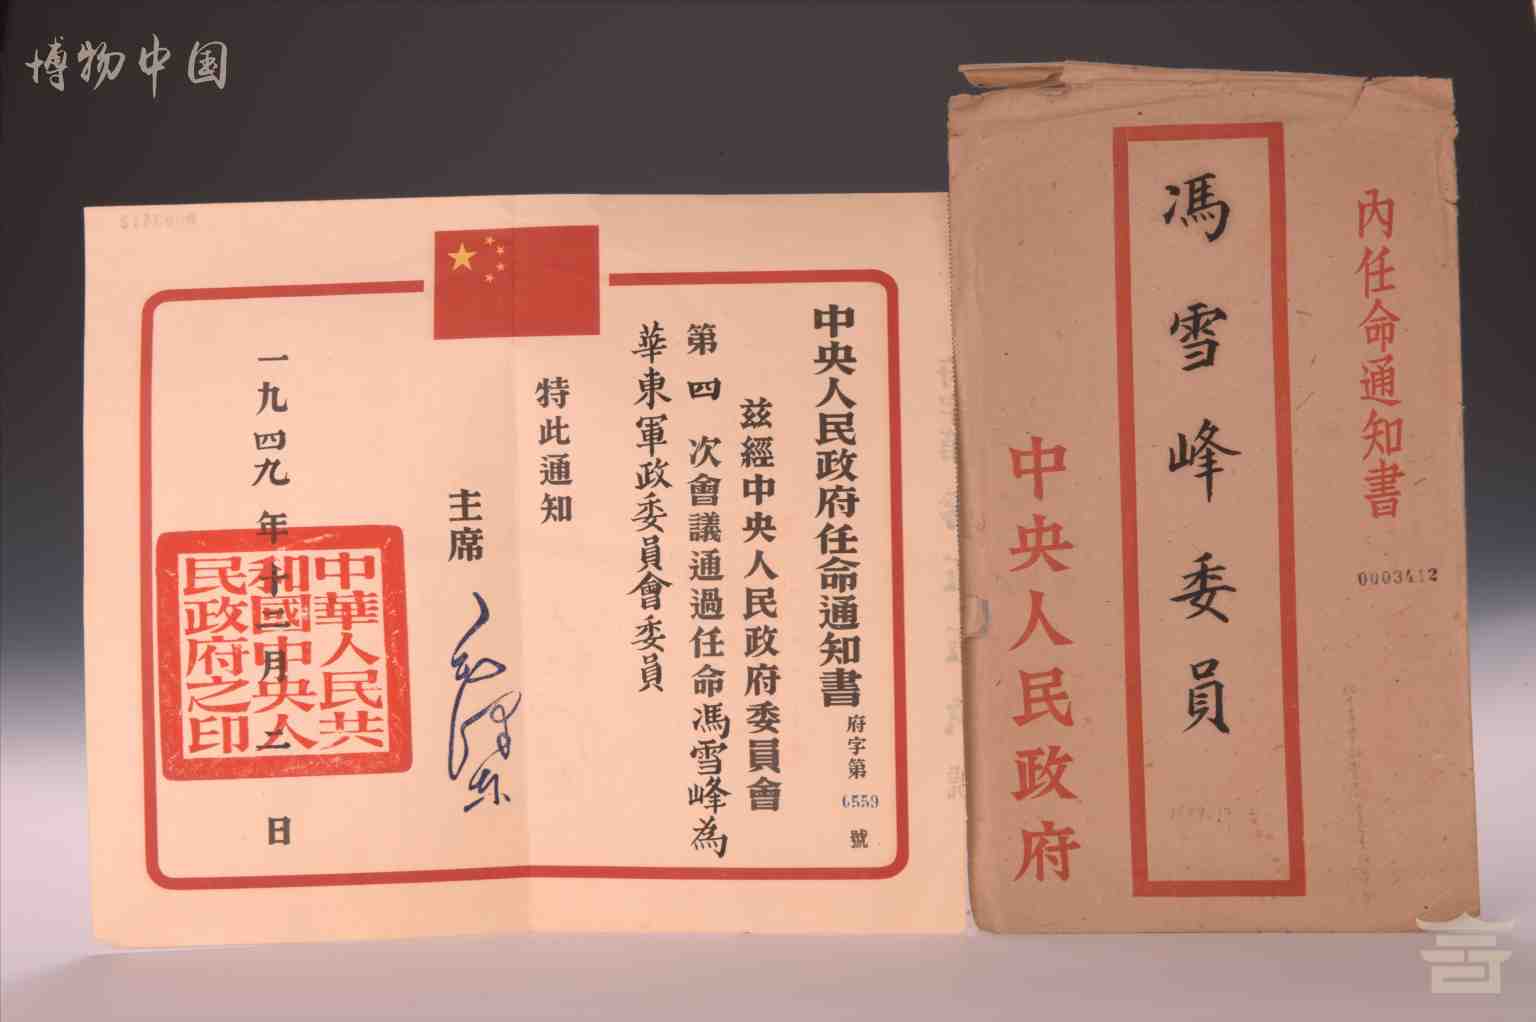 博物中国
中央人民政府任命通知書
府字第6559號
茲經中央人民政府委員會
第四次會議通過任命馮雪峰為
華東軍政委員會委員
特此通知
主席 毛澤東
一九四九年十二月二日
中華人民共
和國中央人
民政府之印
內任命通知書
0003412
馮雪峰委員
中央人民政府